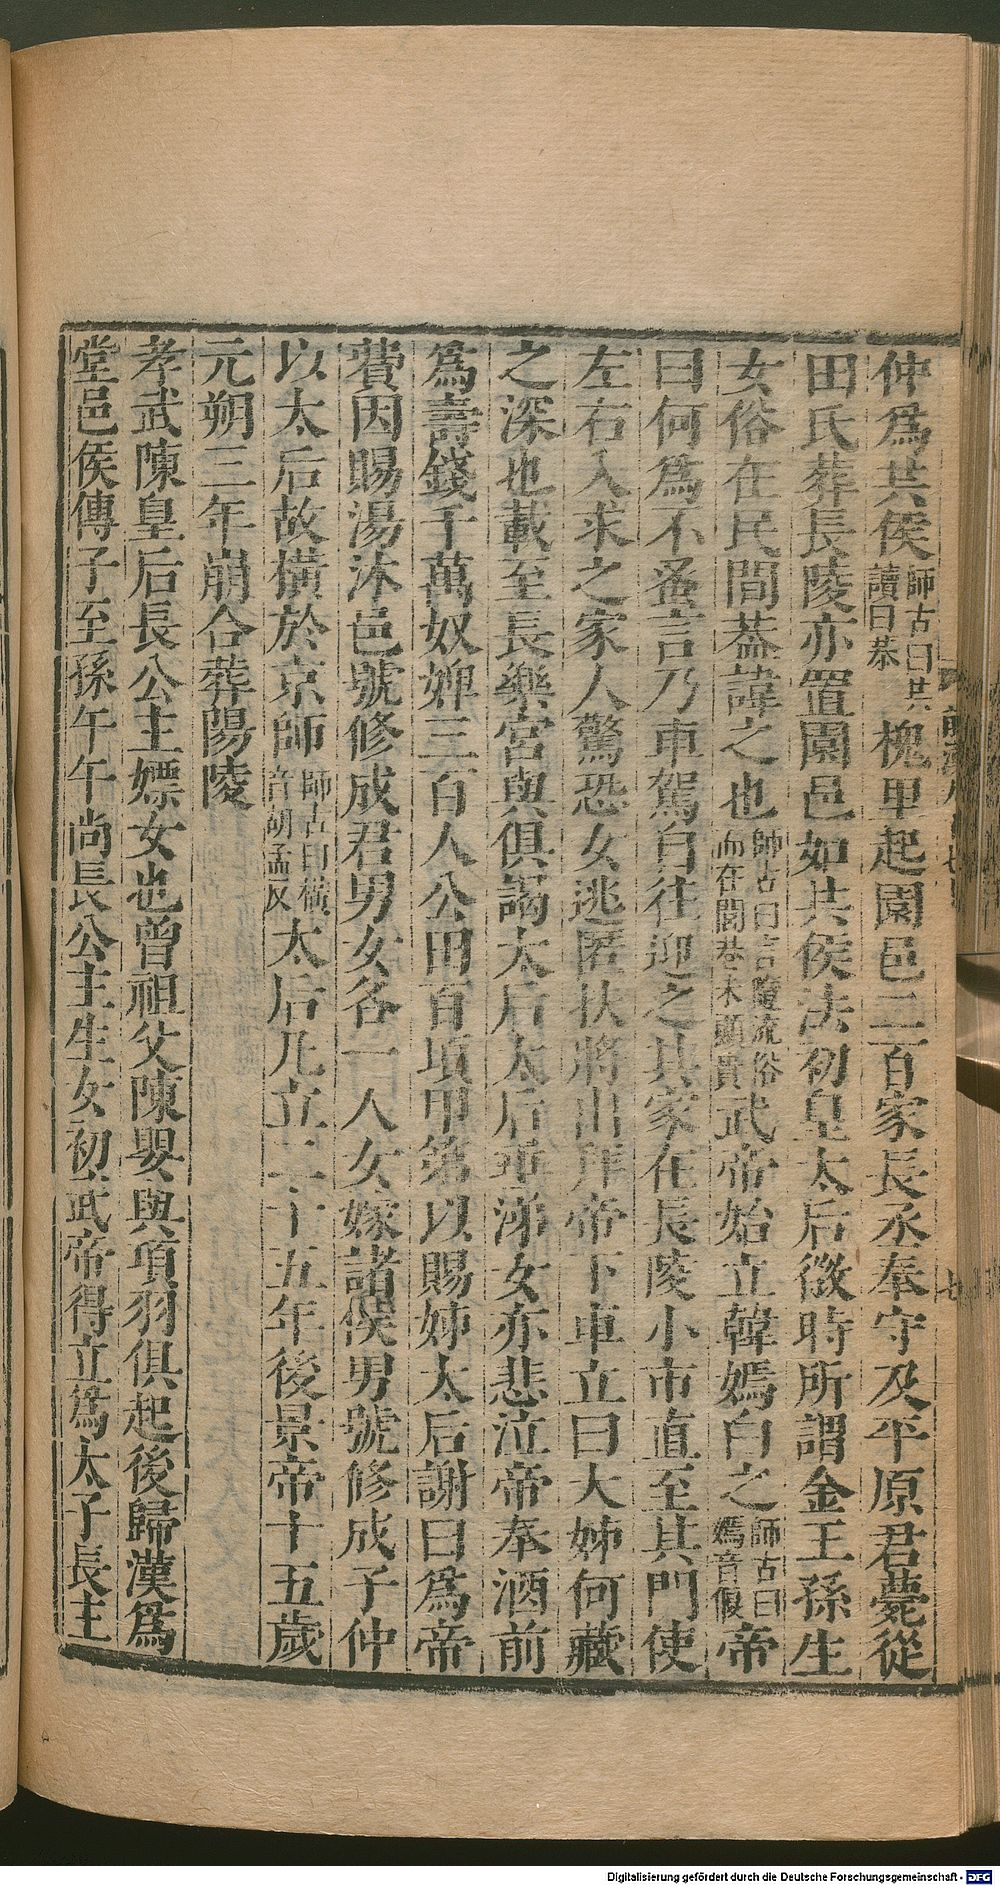 仲爲共侯師古曰共讀曰恭槐里起園邑二百家長丞奉守及平原君薨從
田氏葬長陵亦置園邑如共侯法初皇太后微時所謂金王孫生
女俗在民間葢諱之也師古曰言隨流俗而在閭巷未顯貴武帝始立韓嫣白之師古曰嫣音偃帝
曰何爲不蚤言乃車駕自往迎之其家在長陵小市直至其門使
左右入求之家人驚恐女逃匿扶將出拜帝下車立曰大姊何藏
之深也載至長樂宮與俱謁太后太后垂涕女亦悲泣帝奉酒前
爲壽錢千萬奴婢三百人公田百頃甲第以賜姊太后謝曰爲帝
費因賜湯沐邑號修成君男女各一人女嫁諸侯男號修成子仲
以太后故橫於京師師古曰橫音胡孟反太后凡立二十五年後景帝十五歲
元朔三年崩合葬陽陵
孝武陳皇后長公主嫖女也曾祖父陳嬰與項羽俱起後歸漢爲
堂邑侯傳子至孫午午尚長公主生女初武帝得立爲太子長主
Digitalisierung gefördert durch die Deutsche Forschungsgemeinschaft - DFG